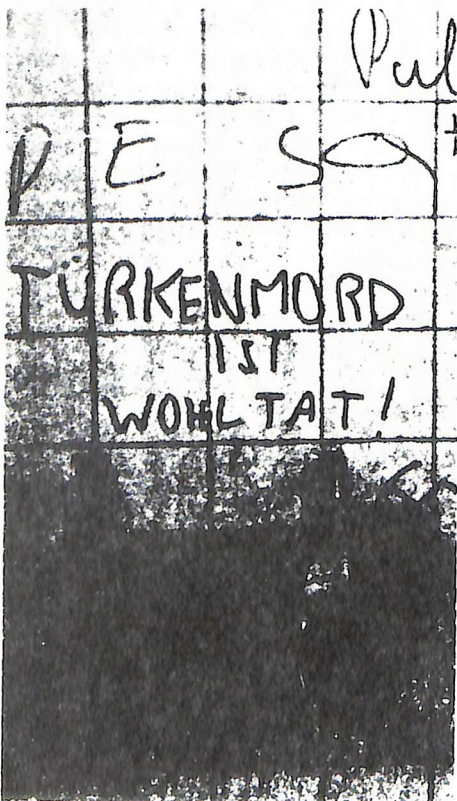 Pul
P E SO
TÜRKENMORD
IST
WOHLTAT!